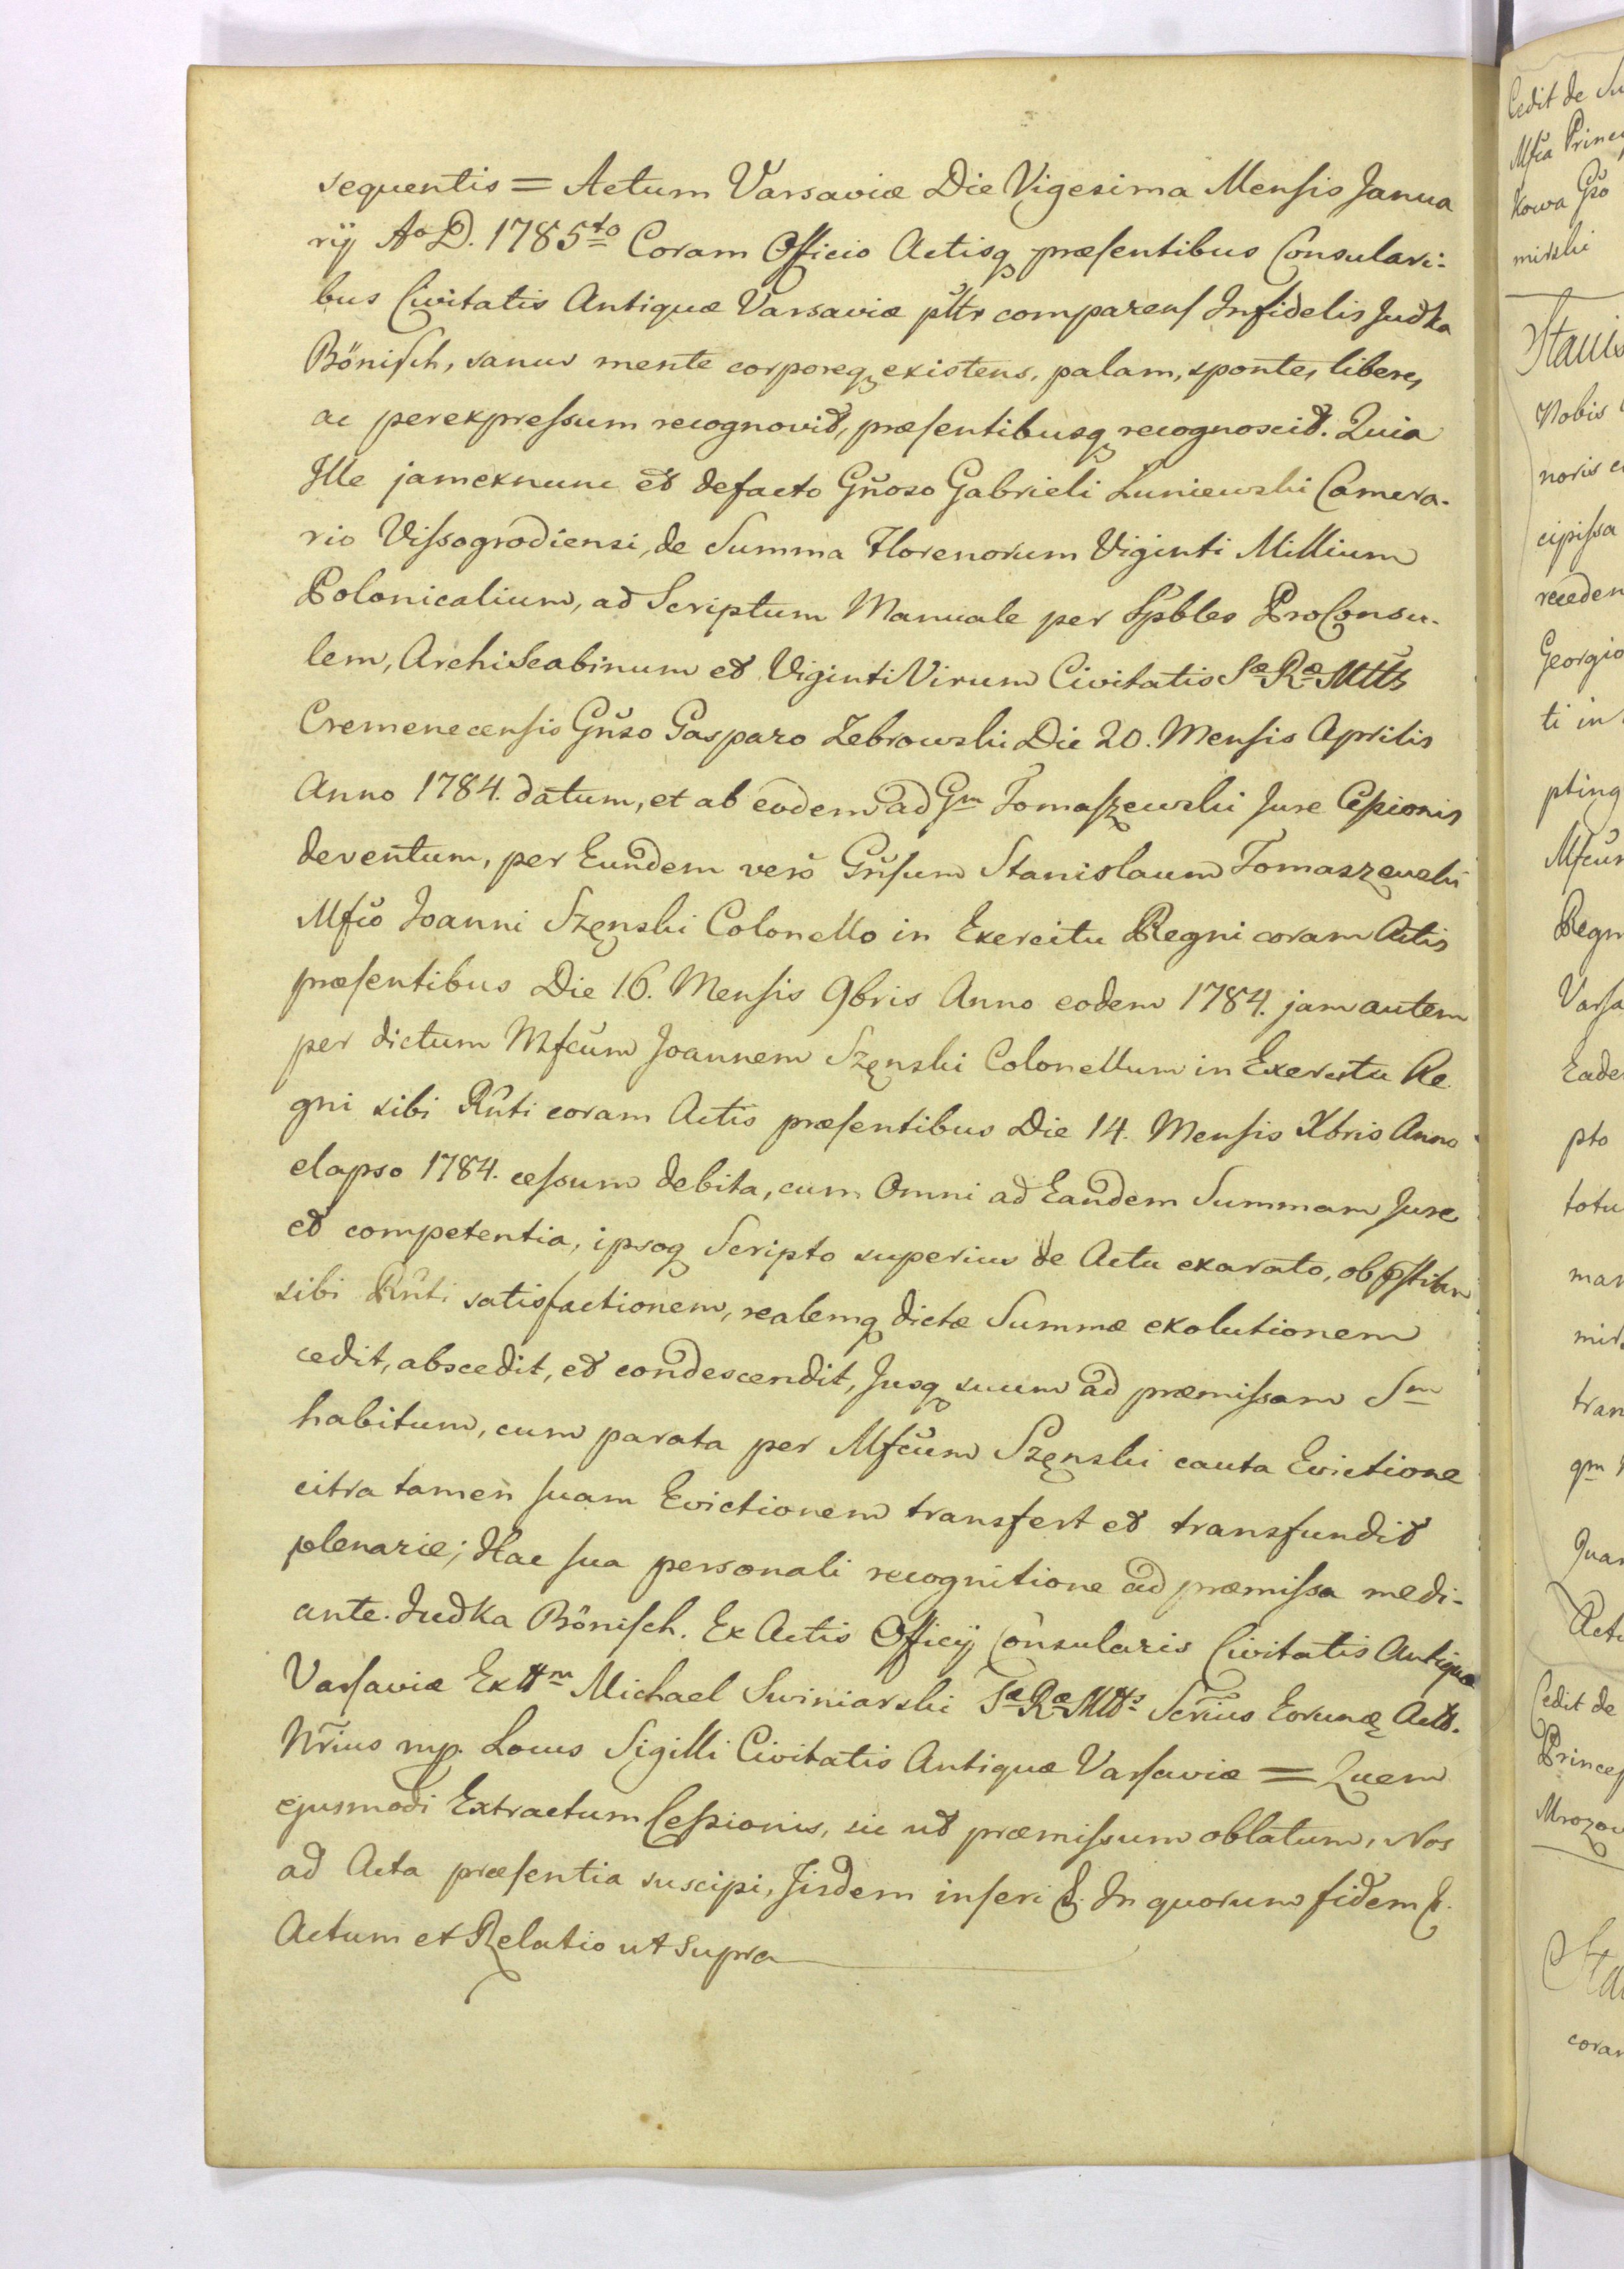 sequentis = Actum Varsaviæ Die Vigesima Mensis Janua
rÿ Ao D. 1785to Coram Officio Actisq præsentibus Consulari-
bus Civitatis Antiquæ Varsaviæ pltr comparens Infidelis Judka
Bönisch, sanus mente corporeq existens, palam, sponte, libere,
ac per expressum recognovit, præsentibusq recognoscit. Quia
Ille jam ex nunc et de facto Gnoso Gabrieli Łuniewski Camera-
rio Vissogrodiensi, de Summa Florenorum Viginti Millium
Polonicalium, ad Scriptum Manuale per Spbles ProConsu-
lem, ArchiScabinum et VigintiVirum Civitatis Sæ Ræ Mtts
Cremenecensis Gnso Gasparo Zebrowski Die 20. Mensis Aprilis
Anno 1784. datum, et ab eodem ad Gm Tomaszewski Jure Cessionis
deventum, per Eundem vero Gnsum Stanislaum Tomaszewski
Mfco Joanni Szęnski Colonello in Exercitu Regni coram Actis
præsentibus Die 16. Mensis 9bris Anno eodem 1784. jam autem
per dictum Mfcum Joannem Szęnski Colonellum in Exercitu Re
gni sibi Rnti coram Actis præsentibus Die 14. Mensis Xbris Anno
elapso 1784. cessum debita, cum Omni ad Eandem Summam Jure
et competentia, ipsoq Scripto superius de Actu exarato, ob
sibi Rnti satisfactionem, realemq dictæ Summæ exolutionem
cedit, abscedit, et condescendit, Jusq suum ad præmissam Sm
habitum, cum parata per Mfcum Szęnski cauta Evictione
citra tamen suam Evictionem transfert et transfundit
plenarie; Hac sua personali recognitione ad præmissa medi-
ante. Judka Bönisch. Ex Actis Officÿ Consularis Civitatis Antiquæ
Varsaviæ Exttm Michael Swiniarski Sæ Ræ Mtts Scrius Eorumq Actt.
Nrius mp. Locus Sigilli Civitatis Antiquæ Varsaviæ = Quem
ejusmodi Extractum Cessionis, sic ut præmissum oblatum, Nos
ad Acta præsentia suscipi, Jisdem inseri &. In quorum fidem &.
Actum et Relatio ut supra
Cedit de Su
Mfca Princ
kowa Gso
mirski
Stanis
Nobis
noris
cipissa
receden
Georgio
ti in
pting
Mfcum
Regn
Varsa
Eade
pto
totu
man
mirs
tran
qm
Quar
Actu
Cedit de
Princep
Mrozow
Sta
coram